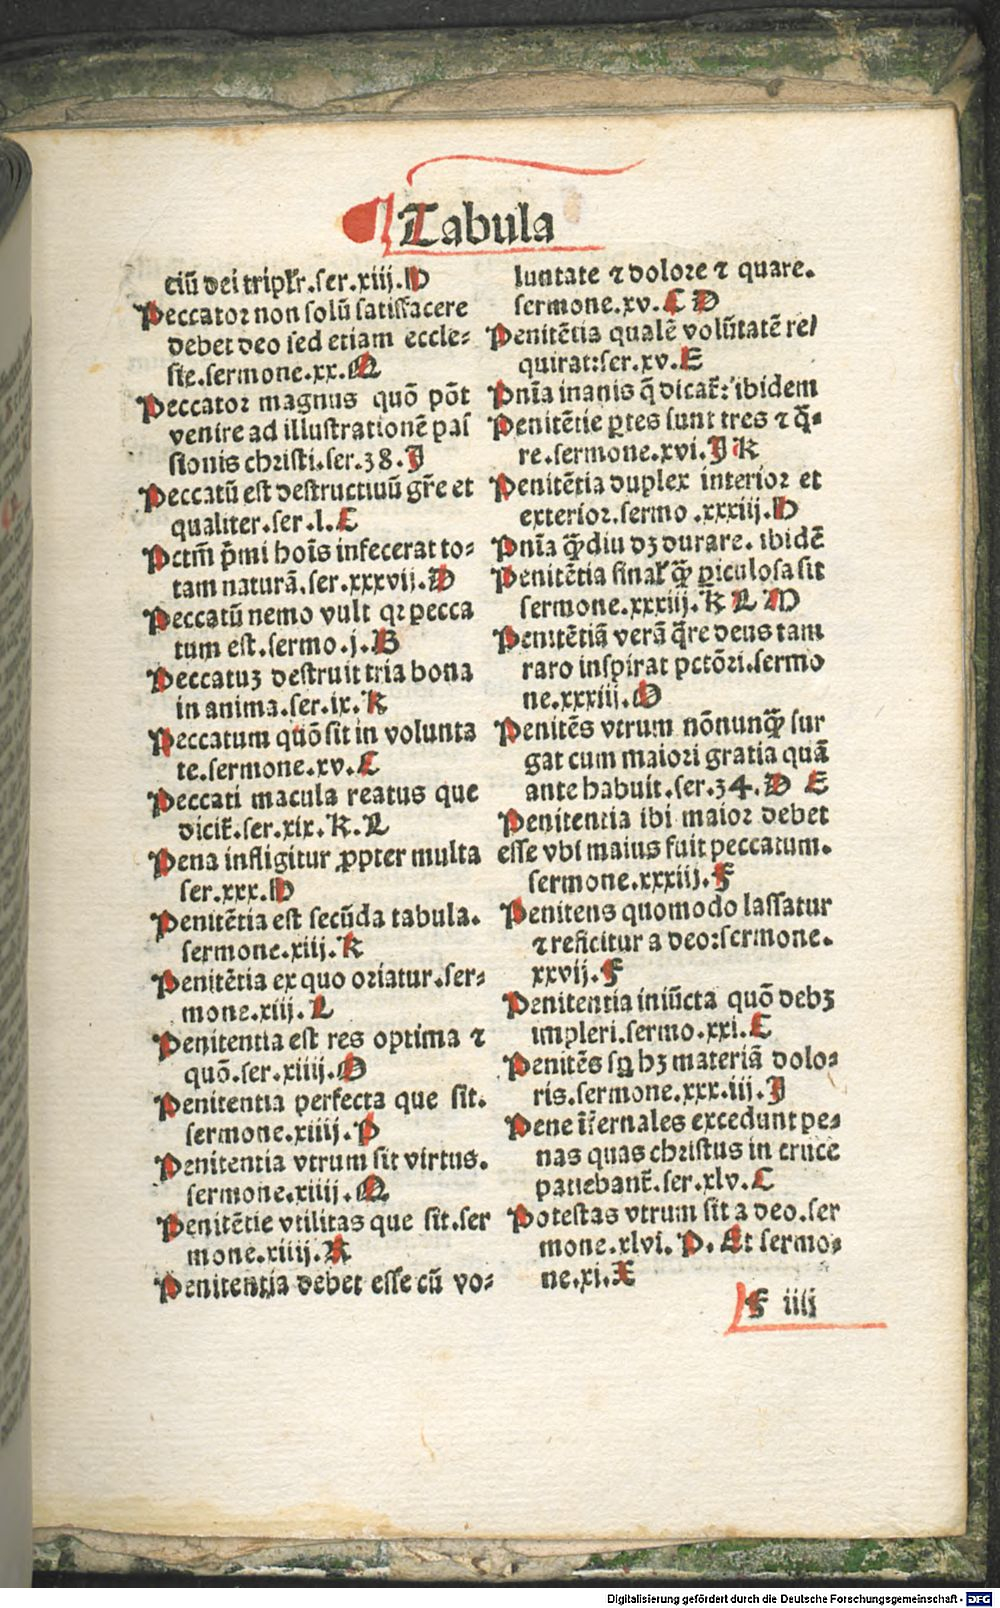 ¶ Tabula
ciū dei tripłr.ser.xiij.D
Peccator non solū satisfacere
debet deo sed etiam eccle⸗
sie.sermone.xx.M
Peccator magnus quō pōt
venire ad illustrationē pas
sionis christi.ser.38.J
Peccatū est destructiuū gr̄e et
qualiter.ser.l.E
Pctm̄ p̄mi hoīs infecerat to⸗
tam naturā.ser.xxxvij.D
Peccatū nemo vult qꝛ pecca
tum est.sermo.j.B
Peccatuꝫ destruit tria bona
in anima.ser.ix.K
Peccatum quōsit in volunta
te.sermone.xv.C
Peccati macula reatus que
dicit̄.ser.xix.K.L
Pena infligitur ꝓpter multa
ser.xxx.D
Penitētia est secūda tabula.
sermone.xiij.K
Penitētia ex quo oriatur.ser⸗
mone.xiij.L
Penitentia est res optima ⁊
quō.ser.xiiij.O
Penitentia perfecta que sit.
sermone.xiiij.P
Penitentia vtrum sit virtus.
sermone.xiiij.Q
Penitētie vtilitas que sit.ser
mone.xiiij.R
Penitentia debet esse cū vo⸗
luntate ⁊ dolore ⁊ quare.
sermone.xv.C D
Penitētia qualē volūtatē re/
quirat:ser.xv.E
Pnīa inanis q̄ dicat̄: ibidem
Penitētie ꝑtes sunt tres ⁊ q̄⸗
re.sermone.xvi.J K
Penitētia duplex interior et
exterior.sermo.xxxiij.D
Pnīa qꝫ̄diu dꝫ durare. ibidē
Penitētia finał qꝫ̄ ꝑiculosa sit
sermone.xxxiij.K L M
Penitētiā verā q̄re deus tam
raro inspirat pctōri.sermo
ne.xxxiij.O
Penitēs vtrum nōnunqꝫ̄ sur
gat cum maiori gratia quā
ante habuit.ser.34.D E
Penitentia ibi maior debet
esse vbi maius fuit peccatum.
sermone.xxxiij.F
Penitens quomodo lassatur
⁊ reficitur a deo:sermone.
xxvij.F
Penitentia iniūcta quō debꝫ
impleri.sermo.xxi.E
Penitēs sꝑ hꝫ materiā dolo⸗
ris.sermone.xxx.iij.J
Pene īfernales excedunt pe⸗
nas quas christus in cruce
patiebant̄.ser.xlv.C
Potestas vtrum sit a deo.ser
mone.xlvi.P. Et sermo⸗
ne.xi.X
F iiij
Digitalisierung gefördert durch die Deutsche Forschungsgemeinschaft - DFG